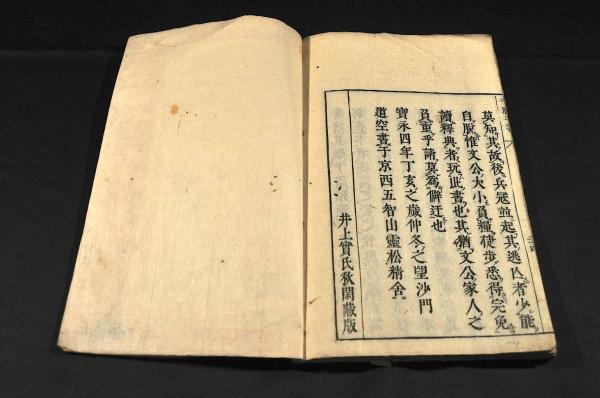 莫知其故後兵寇並起其逃亾者少能
自脫惟文公大小負糧徒步悉得完免
讀釋典者玩此書也其猶文公家人之
負重乎請莫為僻迂也
寶永四年丁亥之歲仲冬之望沙門
道空書于京西五智山靈松精舍
井上實氏秋閑藏版